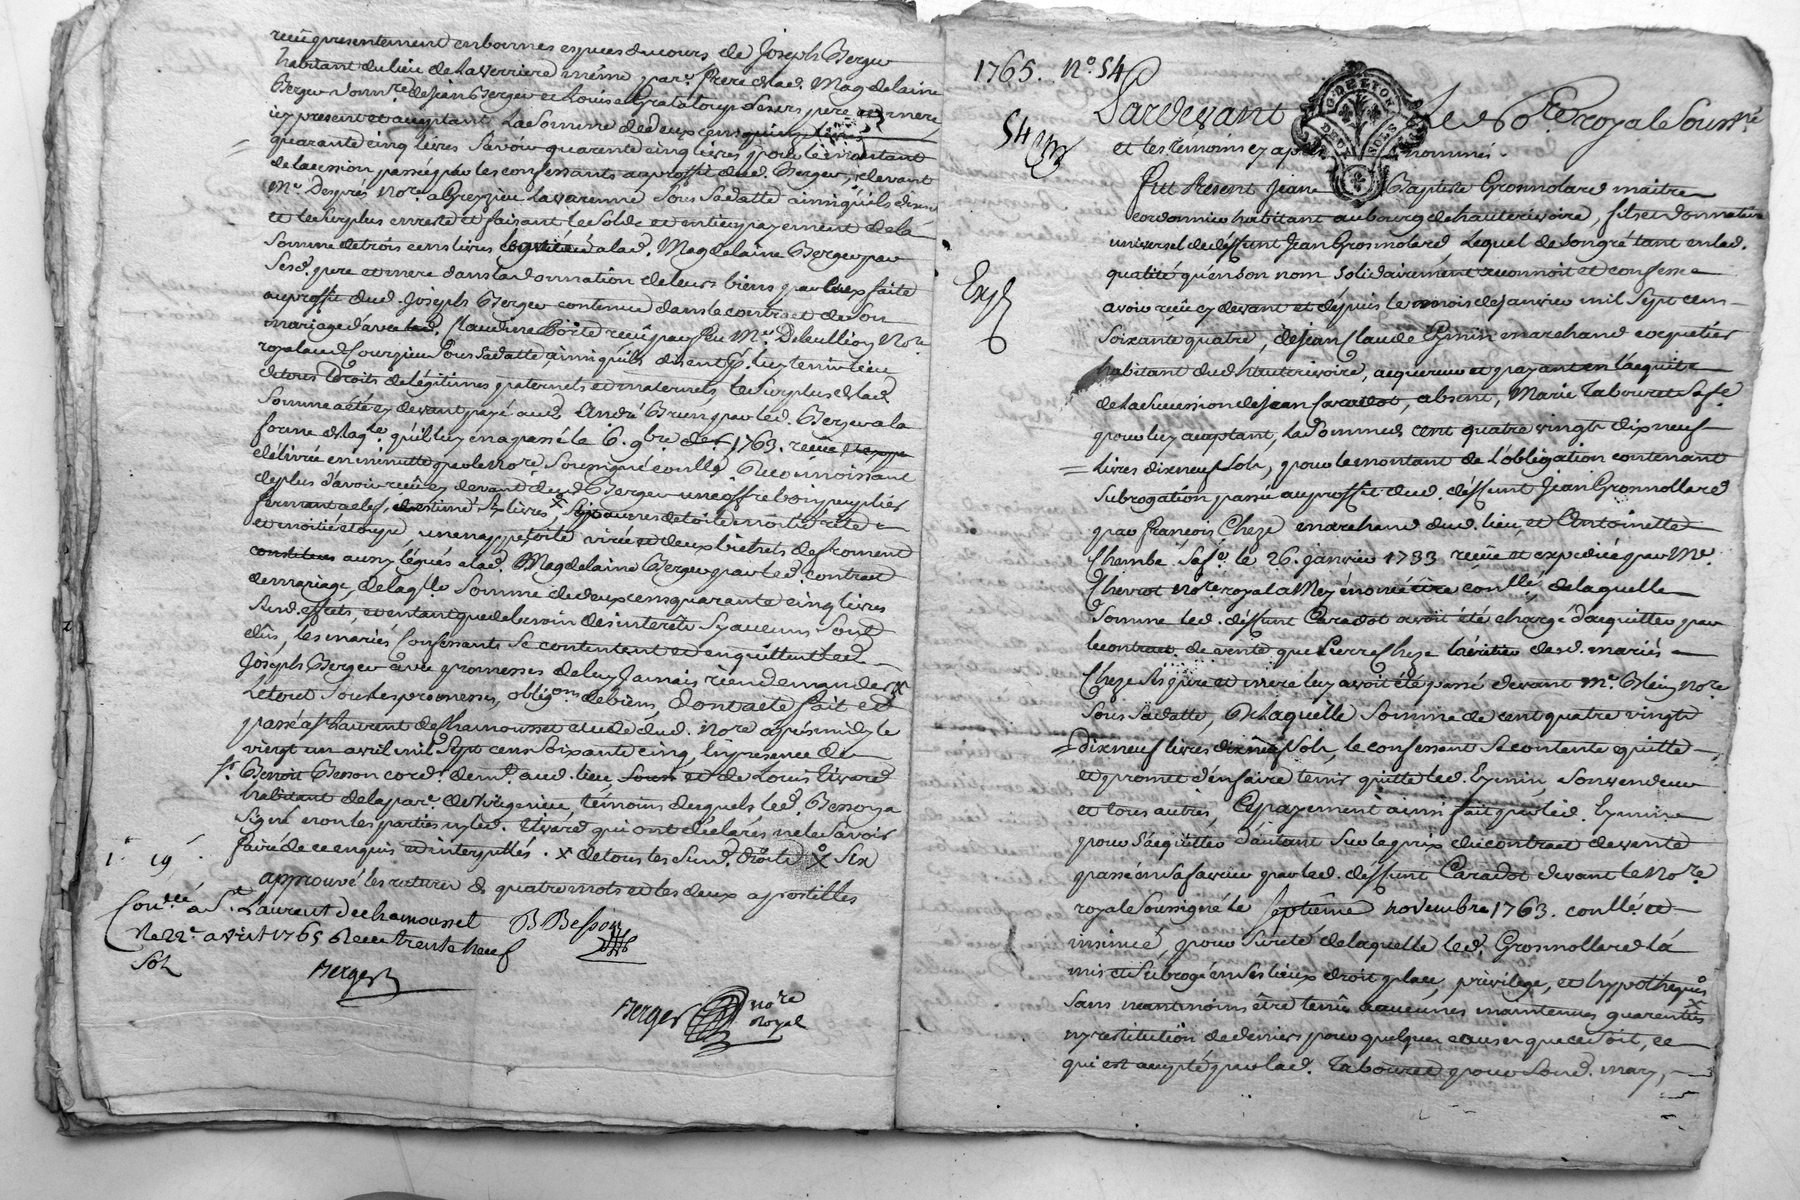 reçû presentement en bonnes especes du cours de Joseph Berger
habitant du lieu de Laverriere même par. frere de lad. Magdelaine
Berger donn.re de Jean Berger et Louise Grataloup ses pere et mere
icy present et acceptant La somme de deux cens
quarante cinq livres Savoir quarente cinq livres pour le montant
de la cession passée par les confessants au proffit dud. Berger, devant
M.e Desprès No.re a Grezieu Lavarenne Sous Sa datte ainsi qu'ils disent
et le surplus en reste et faisant le Solde et entier payement de la
Somme de trois cens livres constitué a lad. Magdelaine Berger par
Sesd. pere et mere dans la donnation de leurs biens par eux faite
au proffit dud. Joseph Berger contenue dans le contract de son
mariage d'avec Claudine reçû par feu M.e Debullioy No.re
royal aud. Courzieu Sous Sa datte, ainsi qu'ils disent luy tenir lieu
de tous Droits de Légitimes paternels et maternels le Surplus de lad.
Somme a été cy devant payé aud. André Brun par led. Berger a la
forme de la q.ce qu'il luy en a passé le 6. 9bre 1763. reçûe
délivrée en minutte par le No.re Soussigné coullé, Reconnoissant
de plus d'avoir reçûs cy devant dud. Berger une coffre bois
fermant a clef, estimé livres, Sept aunes de toile moitié
et moitié étoupe, une nappe toile et deux bichets de froment
aussy légués a lad. Magdelaine Berger par led. contract
de mariage, de laq.le Somme de deux cens quarante cinq livres
Susd. effets, et en tant que de besoin des interets Sy aucuns Sont
dûs, les mariés Confessants Se contentent et en quittent led.
Joseph Berger avec promesses de luy Jamais rien demander X
Le tout Sous les promesses, oblig.ons de biens, Dont acte fait et
passé a S.t Laurent de Chamousset etude dud. No.re après midy le
vingt un avril mil Sept cens Soixante cinq, en presence de
S.r Benoit Besson cord. dem.t aud. lieu, et de Louis Civard
habitant de la par.e de témoins desquels led. Besson a
Signé non les parties ny led. Civard qui ont déclarés ne le Savoir
faire de ce enquis et interpellés. x de tous les Susd. droits x Six
approuvé les ratures de quatre mots et les deux apostilles
1. 19
Con.llé a S.t Laurent de chamousset
le 22.e avril 1765 Reçu trente neuf
Sols
Berger
B Besson
Berger no.re
Royal
1765. N.o 54
54
Exp.
G. DE LYON
DEUX SOLS
Pardevant Le No.re royal Souss.né
et les témoins cy après nommés.
Fut Present Jean Baptiste Grosmolard maitre
cordonnier habitant au bourg de hauterivoire, fils et donnataire
universel de deffunt Jean Grosmolard, Lequel de Son gré tant en lad.
qualité qu'en son nom Solidairement reconnoit et confesse
avoir reçû cy devant et depuis le mois de Janvier mil Sept cens
Soixante quatre, de Jean Claude Eymin marchand coquetier
habitant dud. hauterivoire, acquereur et payant en l'acquit
de la Succession de Jean Caradot, absent, Marie Tabouret Sa f.e
pour luy acceptant, la Somme de cent quatre vingt dix neuf
livres dix neuf Sols, pour le montant de l'obligation contenant
Subrogation passée au proffit dud. deffunt Jean Grosmollard
par François Cheze marchand dud. lieu et Antoinette
Chambe Sa f.e le 26. janvier 1733 reçûe et expediée par M.e
Chevrot No.re royal a Meys coullé, de laquelle
Somme led. deffunt Caradot avoit été chargé d'acquitter par
le contract de vente que Pierre Cheze héritier desd. mariés
Cheze Ses pere et mere luy avoit été passé devant M.e Blein No.re
Sous Sa datte, De laquelle Somme de cent quatre vingt
dix neuf livres dix neuf Sols, le confessant Se contente quitte
et promet d'en faire tenir quitte led. Eymin, Son vendeur
et tous autres, Ce payement ainsi fait par led. Eymin
pour S'acquitter d'autant Sur le prix du contract de vente
passé en Sa faveur par led. deffunt Caradot devant le No.re
royal Soussigné le Septiéme novembre 1763. coullé et
insinué, pour Sureté de laquelle led. Grosmollard l'a
mis et Subrogé en Ses lieux droit place, privilege, et hypothéques
Sans neantmoins être tenû d'aucunes maintenues guarenties
ny restitution de deniers pour quelque cause que ce Soit, ce
qui est accepté par lad. Tabouret pour Sond. mary,